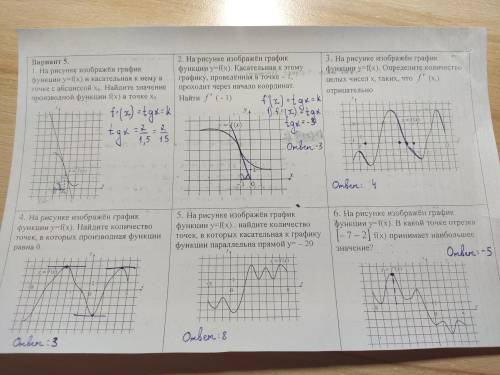 Вариант 5.
1. На рисунке изображён график
функции y=f(x) и касательная к нему в
точке с абсциссой x₀. Найдите значение
производной функции f(x) в точке x₀
f'(x)=tgx=k
tgx = 2/1,5 = 2/15
2. На рисунке изображён график
функции y=f(x). Касательная к этому
графику, проведённая в точке – 1,
проходит через начало координат.
Найти f' (- 1)
f'(x)=tgx=k
tgx=-3
Ответ -3
3. На рисунке изображён график
функции y=f(x). Определите количество
целых чисел xᵢ таких, что f' (xᵢ)
отрицательно
Ответ: 4
4. На рисунке изображён график
функции y=f(x). Найдите количество
точек, в которых производная функции
равна 0.
Ответ: 3
5. На рисунке изображён график
функции y=f(x). найдите количество
точек, в которых касательная к графику
функции параллельна прямой y= – 20
Ответ: 8
6. На рисунке изображён график
функции y=f(x). В какой точке отрезка
[– 7 – 2] f(x) принимает наибольшее
значение?
Ответ: -5